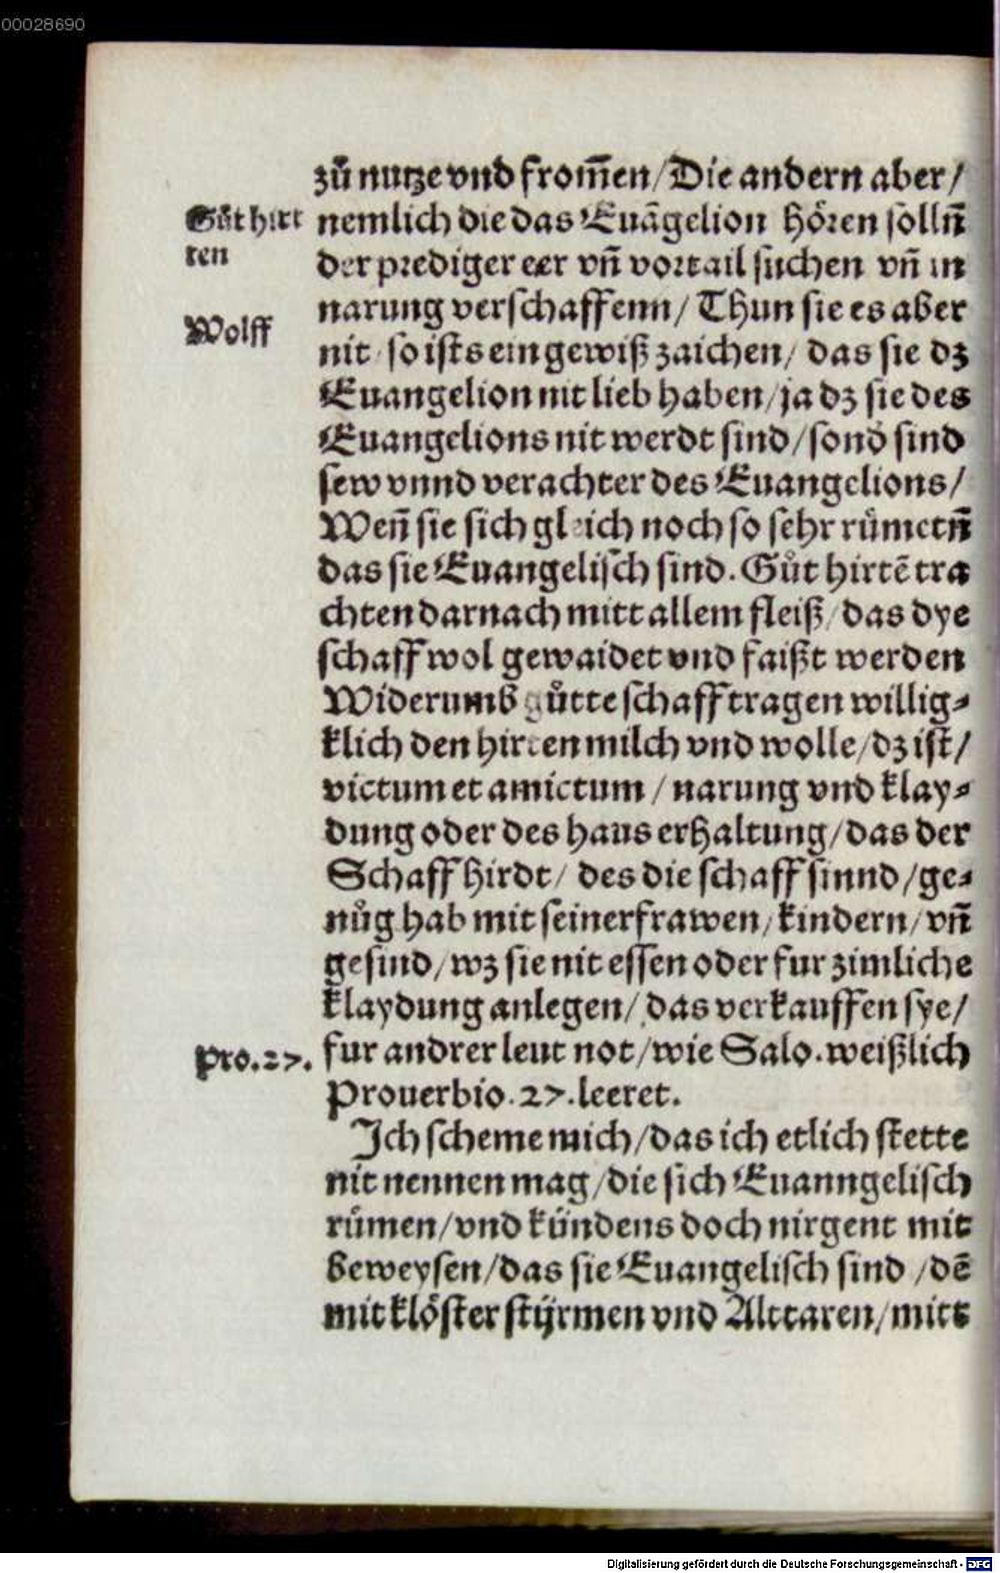 00028690
zů nutze vnd from̃en/Die andern aber/
Gůt hirt
ten
nemlich die das Euãgelion hören solln̄
der prediger eer vn̄ vortail suchen vn̄ in
narung verschaffenn/ Thun sie es aber
Wolff
nit/ so ists ein gewiß zaichen/ das sie dz
Euangelion nit lieb haben/ja dz sie des
Euangelions nit werdt sind/sond̛ sind
sew vnnd verachter des Euangelions/
Wen̄ sie sich gleich noch so sehr růmetn̄
das sie Euangelisch sind. Gůt hirtẽ tra
chten darnach mitt allem fleiß/das dye
schaff wol gewaidet vnd faißt werden
Widerumb gůtte schaff tragen willig⸗
klich den hirten milch vnd wolle/dz ist/
victum et amictum/ narung vnd klay⸗
dung oder des haus erhaltung/das der
Schaff hirdt/ des die schaff sinnd/ge⸗
nůg hab mit seiner frawen/kindern/vn̄
gesind/wz sie nit essen oder fur zimliche
klaydung anlegen/ das verkauffen sye/
Pro.27.
fur andrer leut not/wie Salo.weißlich
Prouerbio.27.leeret.
Ich scheme mich/das ich etlich stette
nit nennen mag/die sich Euanngelisch
růmen/vnd kündens doch nirgent mit
beweysen/das sie Euangelisch sind/dẽ
mit klöster stÿrmen vnd Alttaren/mitt
Digitalisierung gefördert durch die Deutsche Forschungsgemeinschaft - DFG